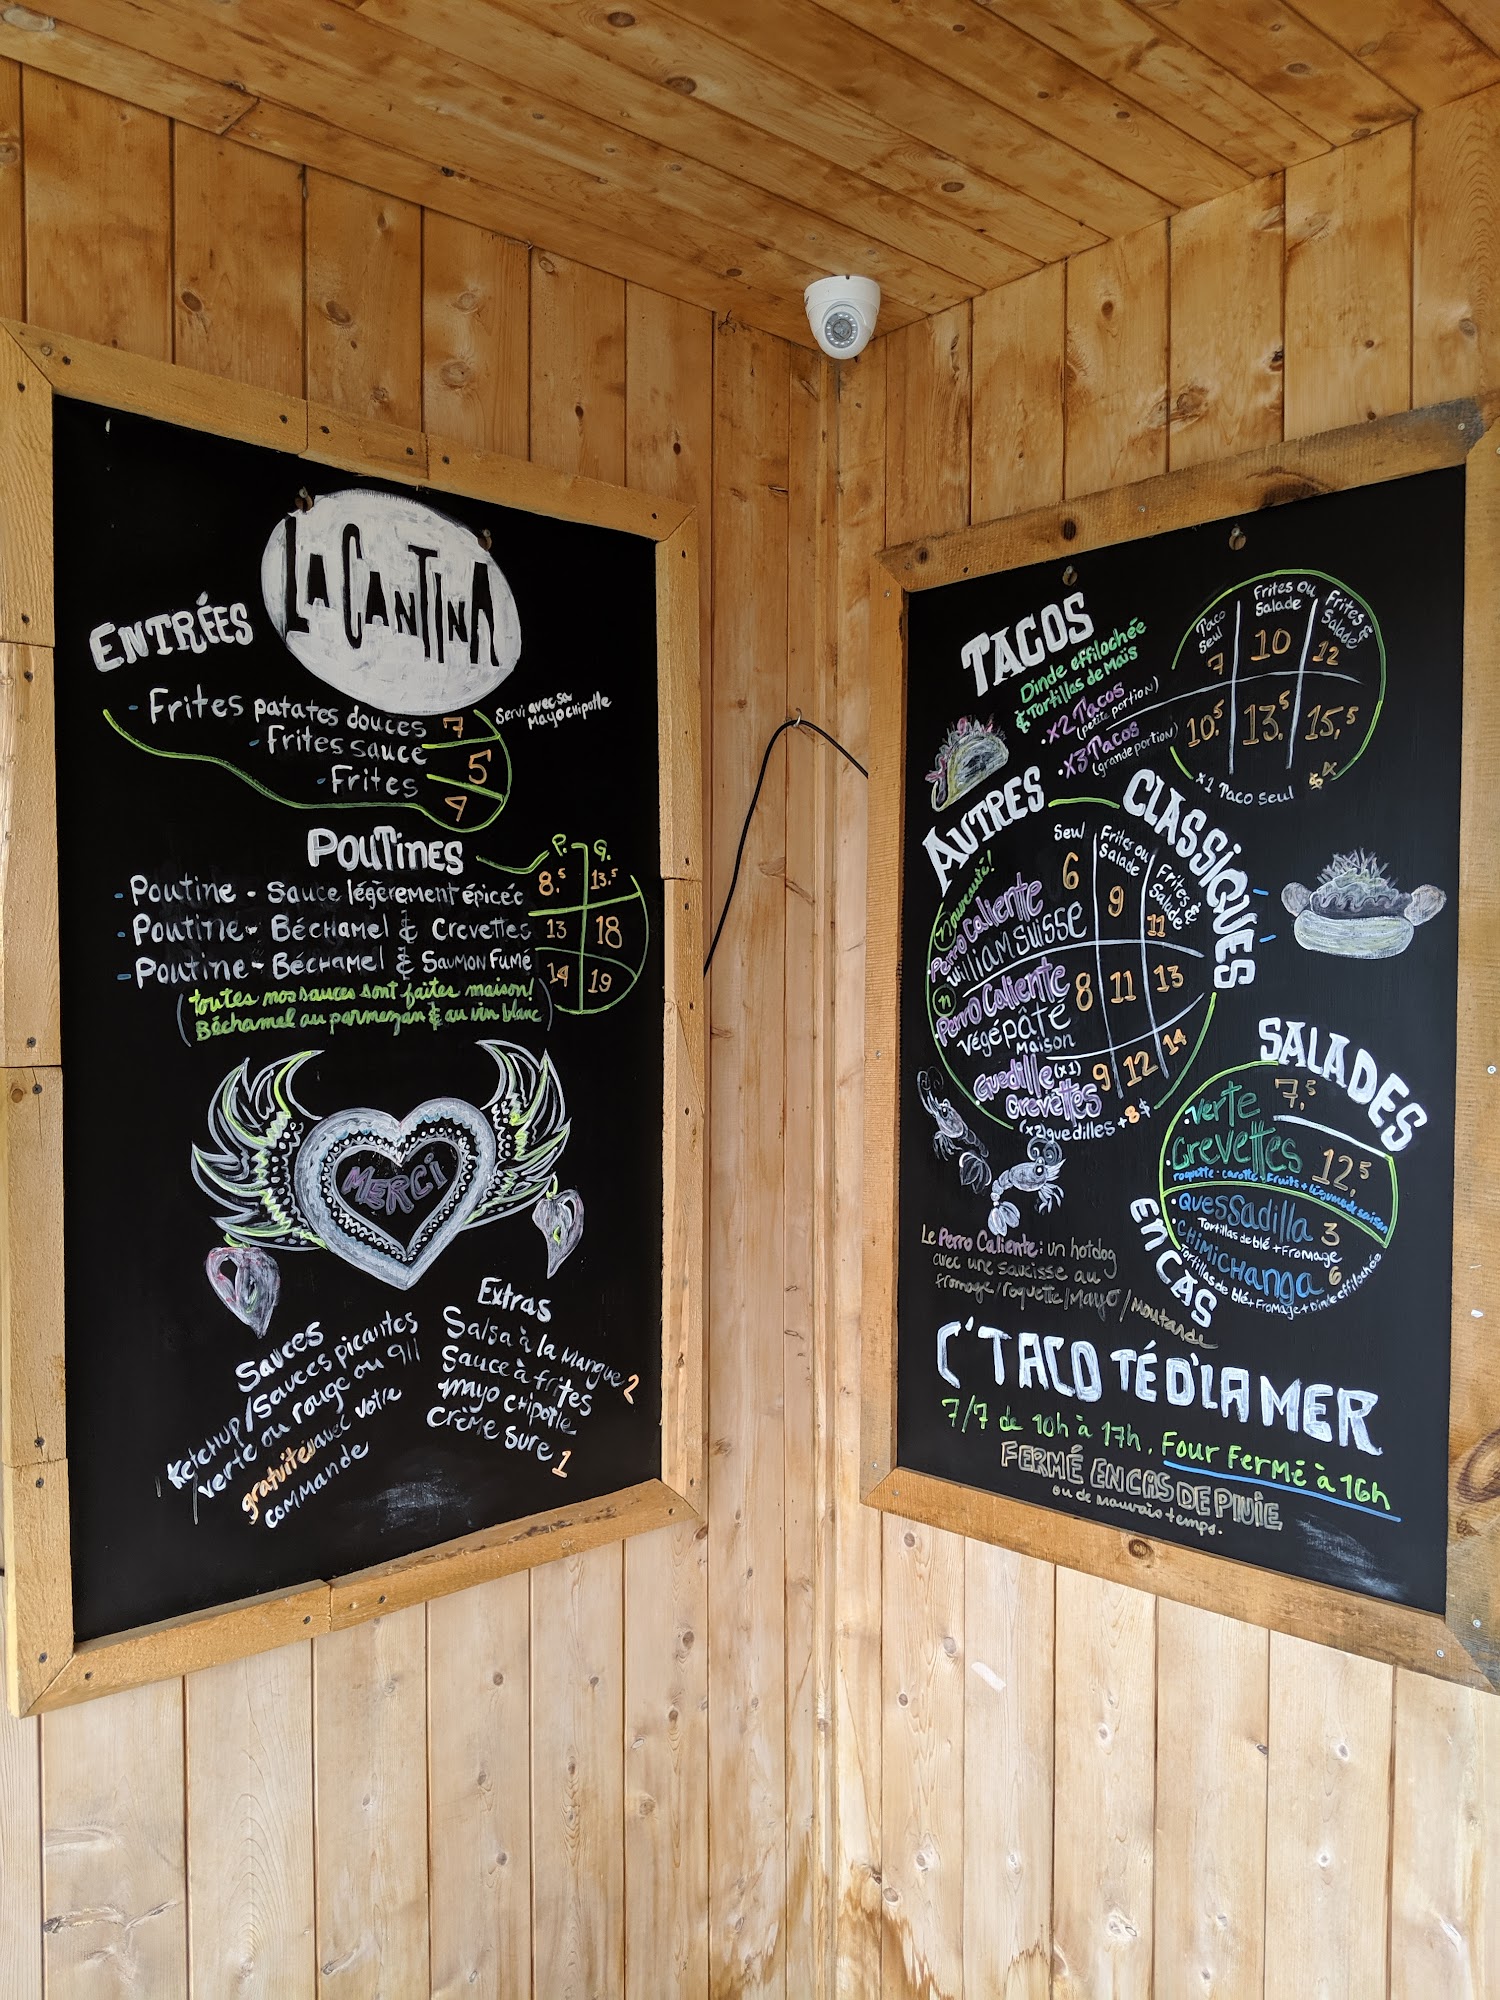 LA CANTINA
ENTRÉES
- Frites patates douces 7
Servi avec sa
Mayo chipotle
- Frites sauce 5
- Frites 4
POUTINES P. G.
- Poutine - Sauce légèrement épicée 8,5 13,5
- Poutine - Béchamel & Crevettes 13 18
- Poutine - Béchamel & Saumon Fumé 14 19
(toutes nos sauces sont faites maison!
Béchamel au parmezan & au vin blanc)
MERCI
Sauces
Ketchup/Sauces picantes
verte ou rouge ou 911
gratuites avec votre
commande
Extras
Salsa à la Mangue 2
Sauce à frites
mayo chipotle
Crème Sure 1
TACOS
Dinde effilochée
& Tortillas de Maïs
Taco Seul
Frites ou Salade
Frites & Salade
• x2 Tacos
(petite portion)
7 10 12
• x3 Tacos
(grande portion)
10,5 13,5 15,5
x1 Taco Seul $4
AUTRES CLASSIQUES
Seul
Frites ou Salade
Frites & Salade
(n)ouveauté!
Perro Caliente
William Suisse
6 9 11
n
Perro Caliente
Végépâte
Maison
8 11 13
Guedille (x1)
Crevettes
9 12 14
(x2) guedilles + 8$
SALADES
• Verte 7,5
• Crevettes 12,5
roquette • carotte • Fruits + légumes de saison
EN CAS
• Quessadilla 3
Tortillas de blé + Fromage
• CHIMICHANGA 6
Tortillas de blé + Fromage + Dinde effilochée
Le Perro Caliente: un hotdog
avec une saucisse au
fromage/roquette/Mayo/Moutarde
C'TACO TÉ D'LA MER
7/7 de 10h à 17h. Four Fermé à 16h
FERMÉ EN CAS DE PLUIE
ou de mauvais temps.